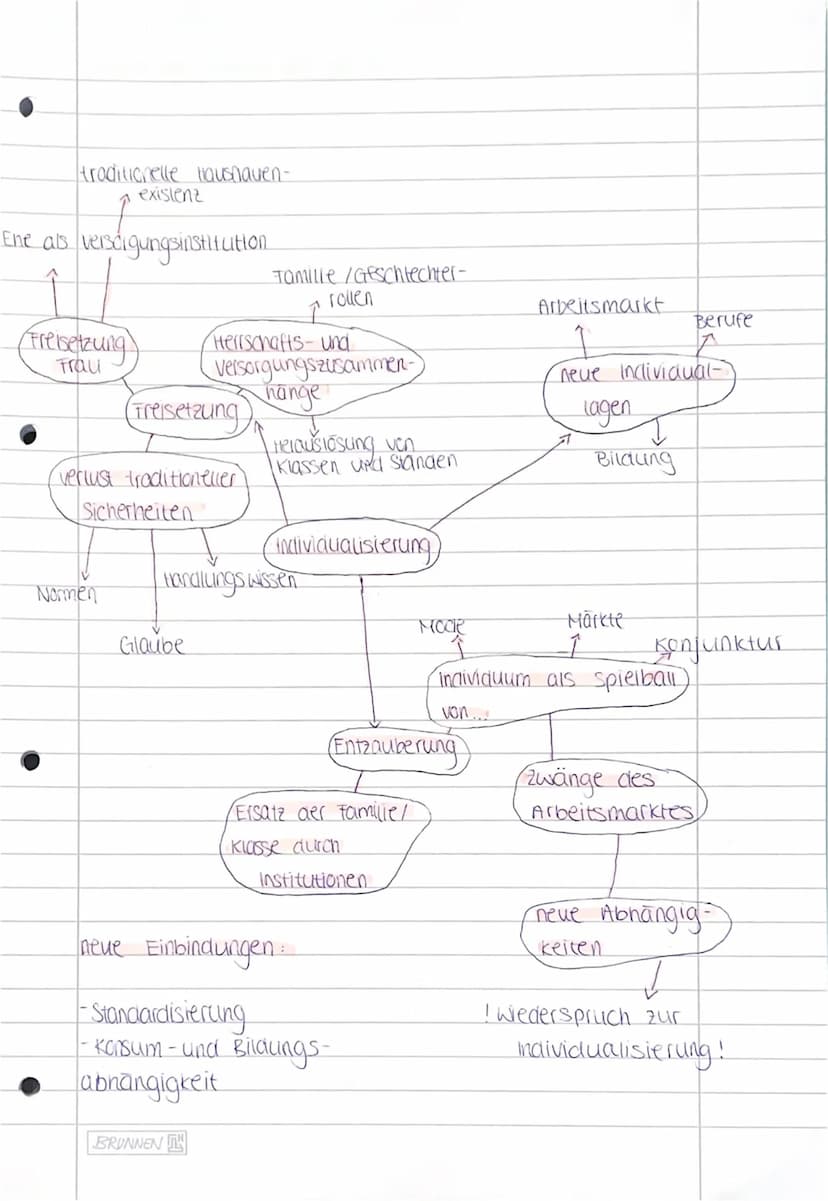 traditionelle Hausfrauen-
existenz
Ehe als Versorgungsinstitution
Familie / Geschlechter-
rollen
Arbeitsmarkt
Berufe
Freisetzung
Frau
Herrschafts- und
Versorgungszusammen-
hänge
neue Individual-
lagen
Freisetzung
Herauslösung von
Klassen und Ständen
Bildung
Verlust traditioneller
Sicherheiten
Individualisierung
Normen
Handlungswissen
Glaube
Mode
Märkte
Konjunktur
Individuum als Spielball
von...
Entzauberung
Zwänge des
Arbeitsmarktes
Ersatz der Familie/
Klasse durch
Institutionen
neue Abhängig-
keiten
neue Einbindungen:
- Standardisierung
- Konsum- und Bildungs-
abhängigkeit
! Wiederspruch zur
Individualisierung!
BRUNNEN